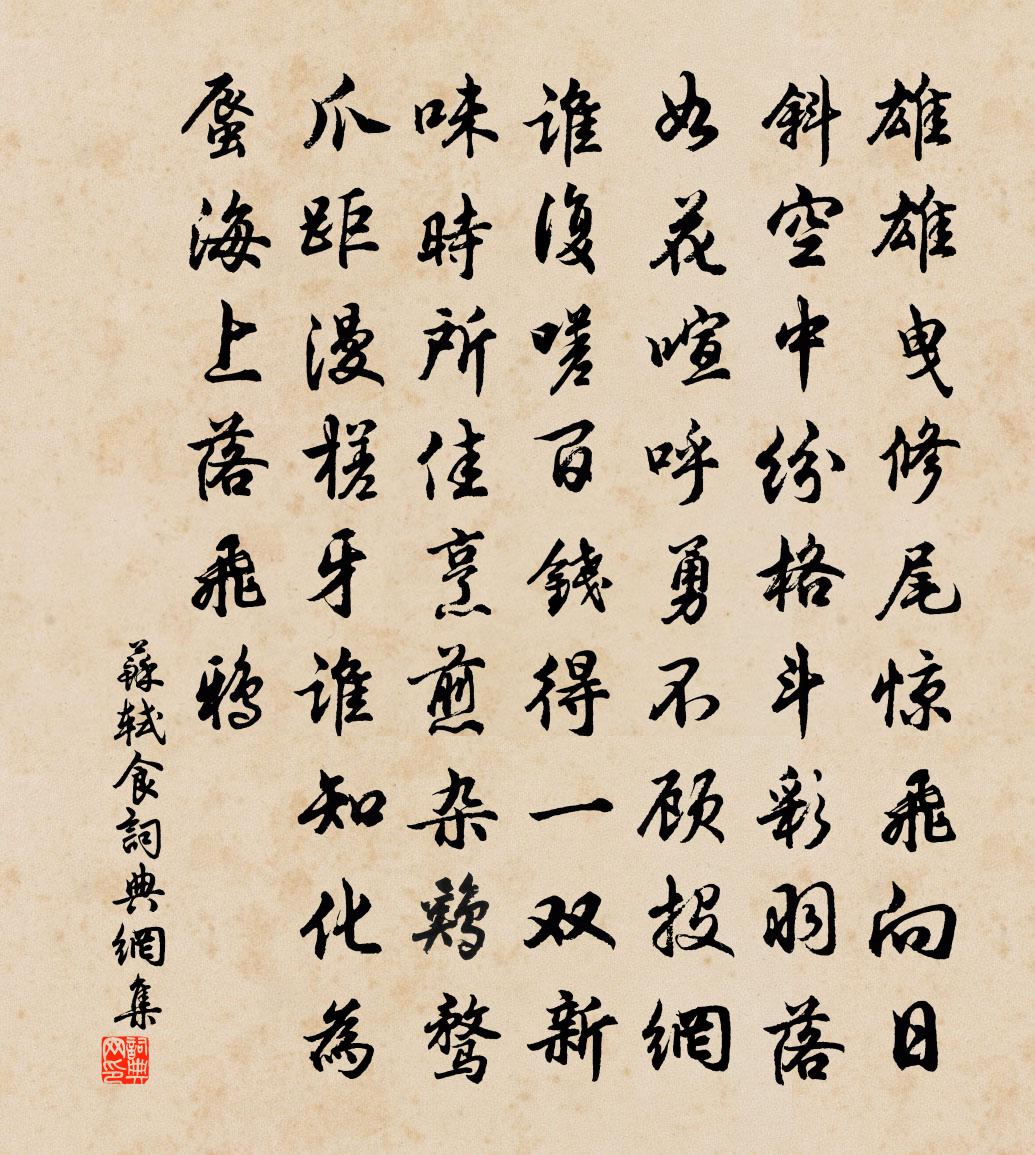 雄雄曳修尾惊飛向日
斜空中紛格斗彩羽落
如花喧呼勇不顾投網
谁復嗟百錢得一双新
味時所佳烹煎杂鷄鹜
爪距漫槎牙谁知化為
蜃海上落飛鴉
蘇軾食詞典網集
詞典网印